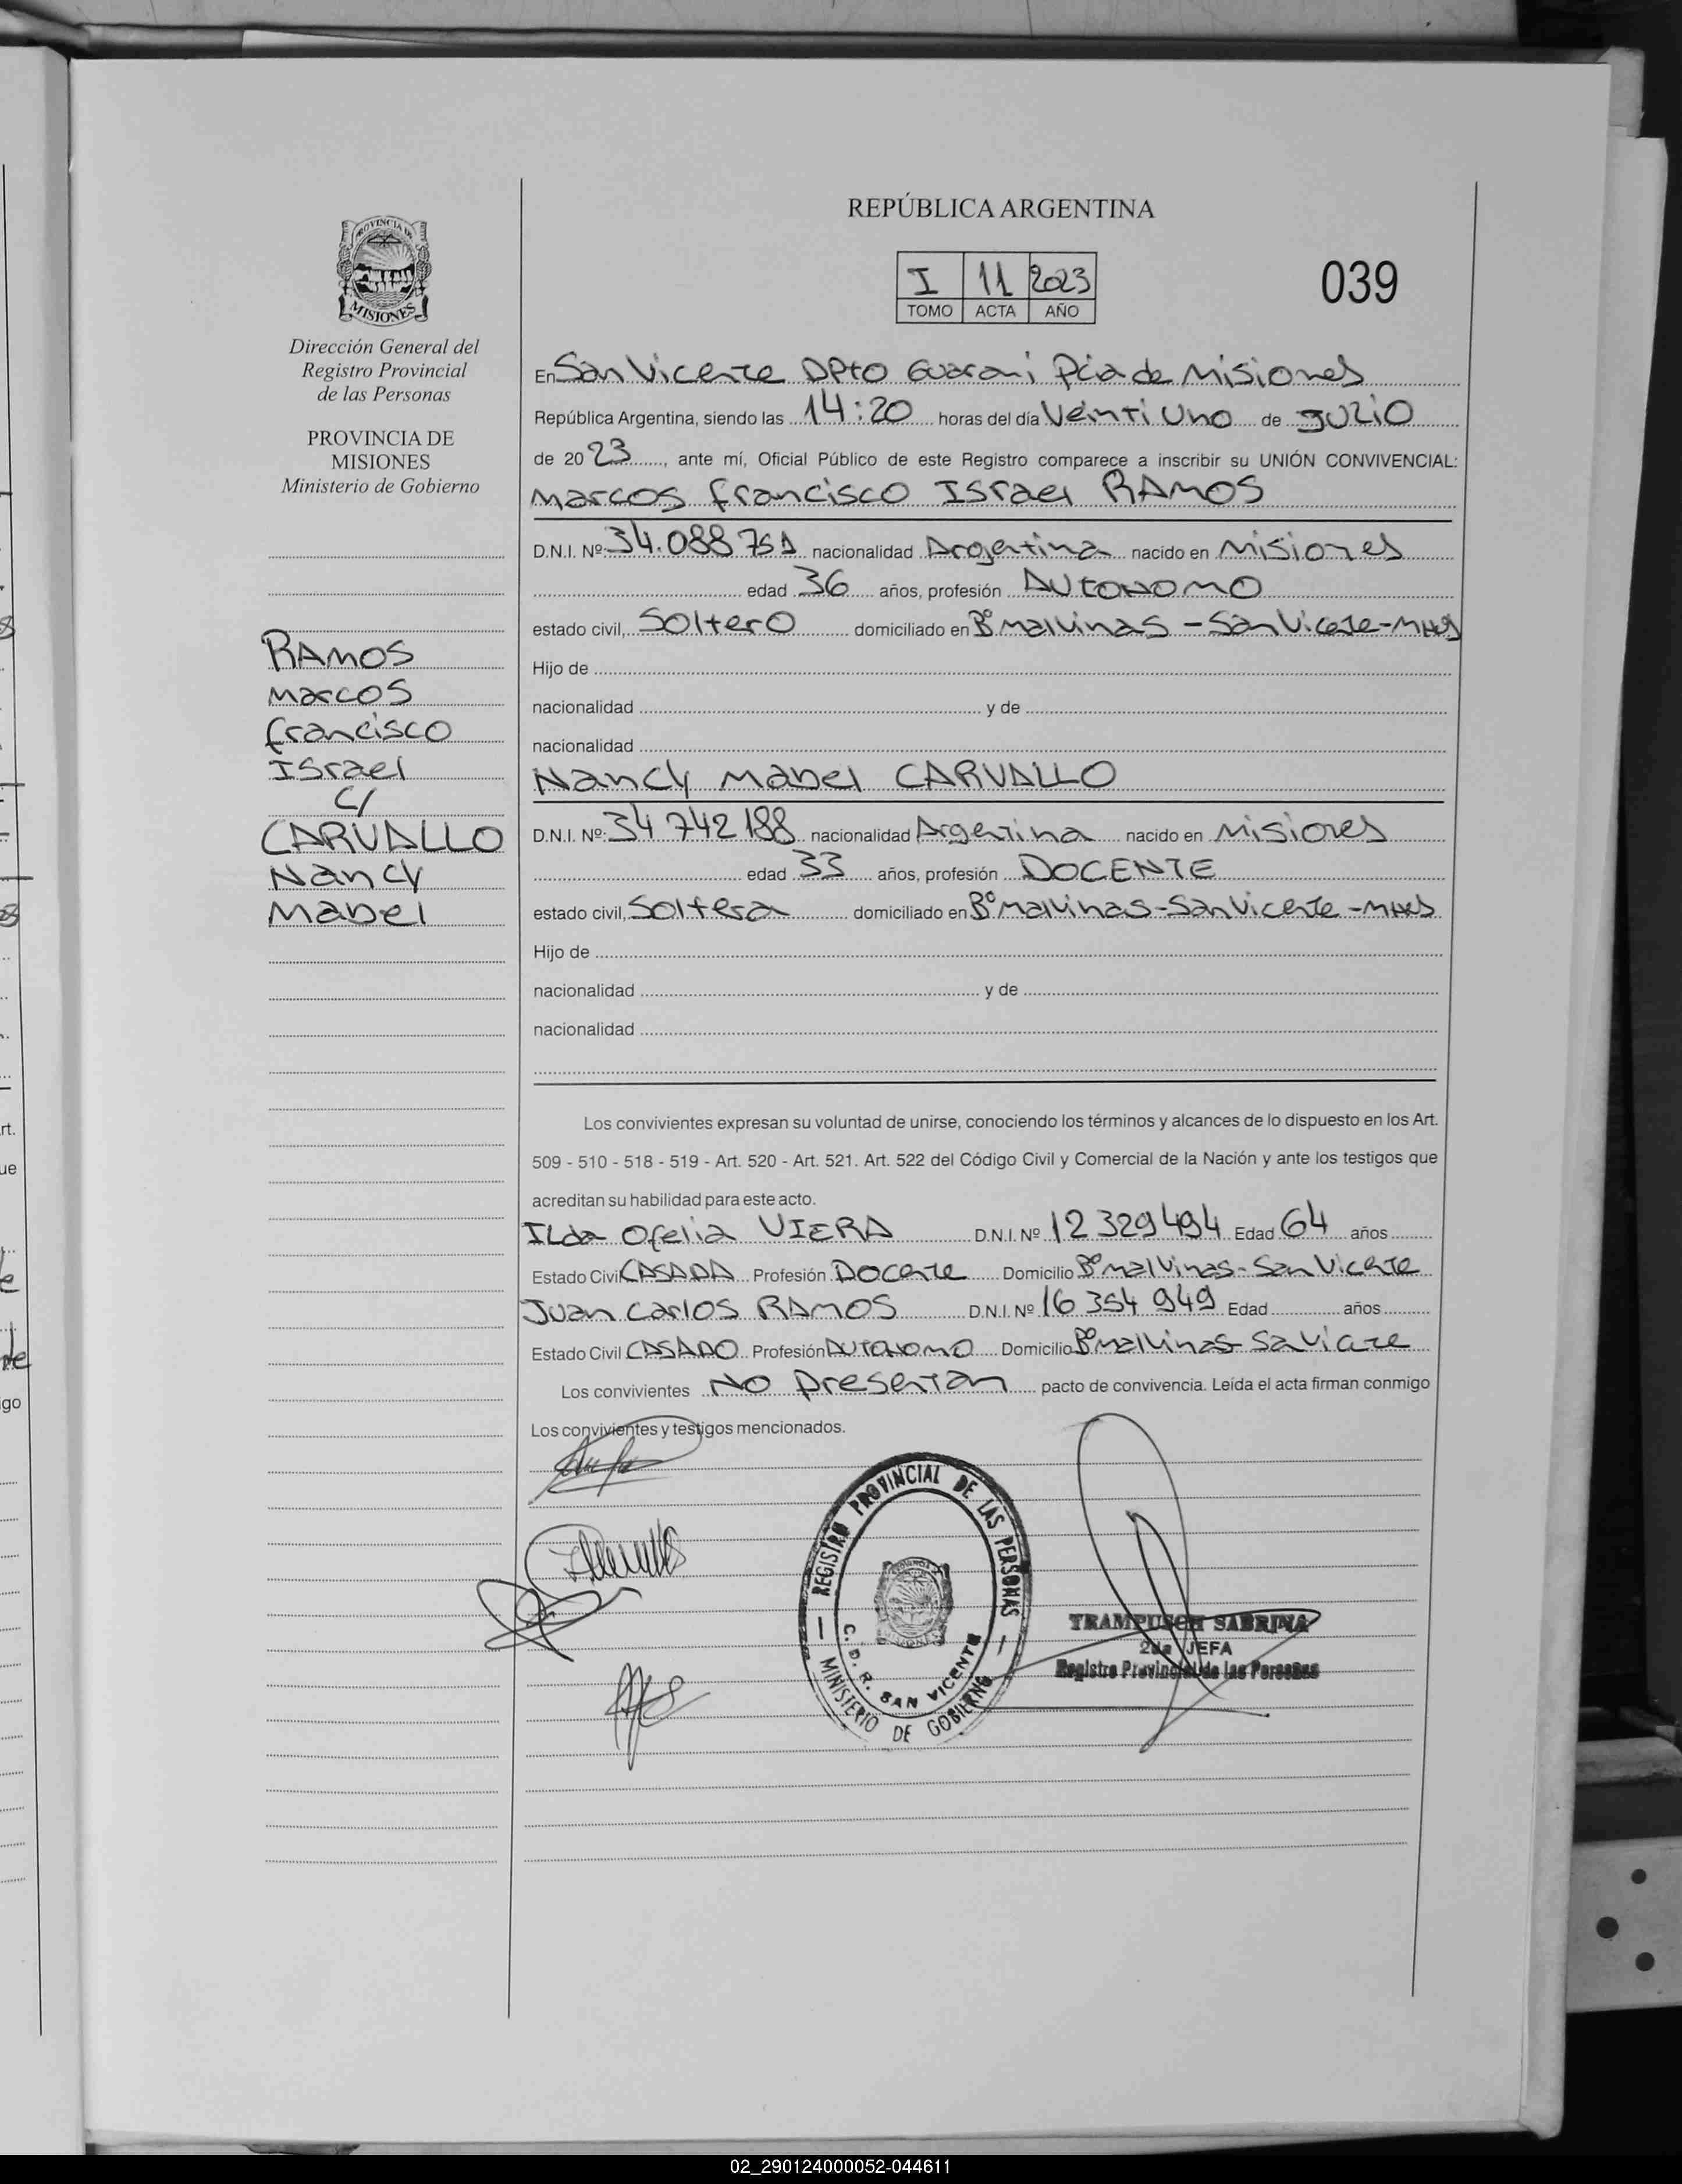 PROVINCIA DE
MISIONES
Dirección General del
Registro Provincial
de las Personas
PROVINCIA DE
MISIONES
Ministerio de Gobierno
RAMOS
Marcos
Francisco
Israel
C/
CARVALLO
Nancy
Mabel
REPÚBLICA ARGENTINA
I 11 2023
TOMO ACTA AÑO
039
En San Vicente DPto Guarani Pcia de Misiones
República Argentina, siendo las 14:20 horas del día Veinti Uno de Julio
de 20 23, ante mí, Oficial Público de este Registro comparece a inscribir su UNIÓN CONVIVENCIAL:
Marcos Francisco Israel RAMOS
D.N.I. Nº: 34.088751 nacionalidad Argentina nacido en Misiones
edad 36 años, profesión AUTONOMO
estado civil, Soltero domiciliado en Bº Malvinas - San Vicente - Mnes
Hijo de
nacionalidad y de
nacionalidad
Nancy Mabel CARVALLO
D.N.I. Nº: 34 742 188 nacionalidad Argentina nacido en Misiones
edad 33 años, profesión DOCENTE
estado civil, Soltera domiciliado en Bº Malvinas - San Vicente - Mnes
Hijo de
nacionalidad y de
nacionalidad
Los convivientes expresan su voluntad de unirse, conociendo los términos y alcances de lo dispuesto en los Art.
509 - 510 - 518 - 519 - Art. 520 - Art. 521. Art. 522 del Código Civil y Comercial de la Nación y ante los testigos que
acreditan su habilidad para este acto.
ILda Ofelia VIERA D.N.I. Nº 12 329 494 Edad 64 años
Estado Civil CASADA Profesión Docente Domicilio Bº Malvinas - San Vicente
Juan Carlos RAMOS D.N.I. Nº 16 354 949 Edad años
Estado Civil CASADO Profesión AUTONOMO Domicilio Bº Malvinas San Vicente
Los convivientes No Presentan pacto de convivencia. Leída el acta firman conmigo
Los convivientes y testigos mencionados.
REGISTRO PROVINCIAL DE LAS PERSONAS
C. D. R. SAN VICENTE
MINISTERIO DE GOBIERNO
TRAMPUSCH SABRINA
2da JEFA
Registro Provincial de las Personas
02_290124000052-044611